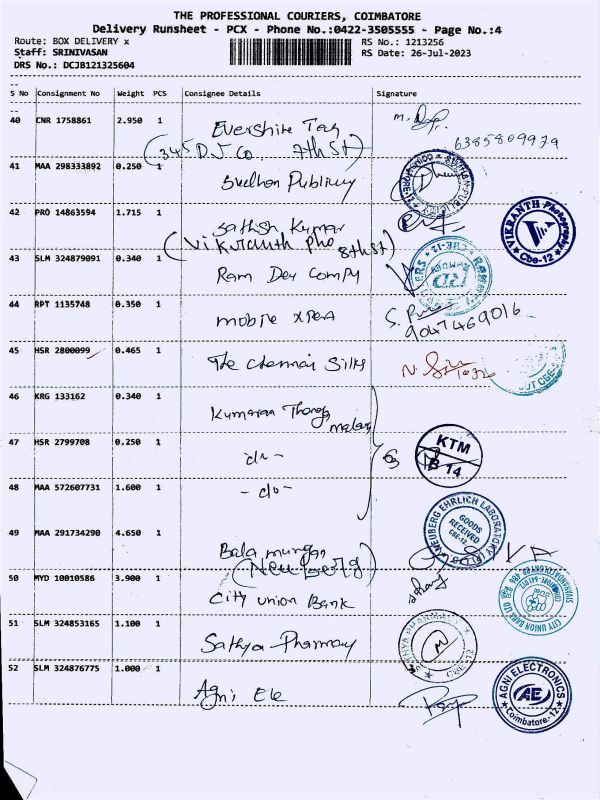 THE PROFESSIONAL COURIERS, COIMBATORE
Delivery Runsheet - PCX - Phone No.:0422-3505555 - Page No.:4
Route: BOX DELIVERY x
RS No.: 1213256
Staff: SRINIVASAN
RS Date: 26-Jul-2023
DRS No.: DCJB121325604
S No Consignment No Weight PCS Consignee Details Signature
40 CNR 1758861 2.950 1 Evershine Tag
(345 D.J Co. 7th St)
6385809979
41 MAA 298333892 0.250 1 Sudhan Publicity
42 PRO 14863594 1.715 1 Sathish Kumar
(Vikranth Pho 8th St)
VIKRANTH Photography
Cbe-12
43 SLM 324879091 0.340 1 Ram Dev Compy
RD
44 RPT 1135748 0.350 1 mobile Xpea
9047469016
45 HSR 2800099 0.465 1 The Chennai Silks
46 KRG 133162 0.340 1 Kumaran Thanga
maligai
47 HSR 2799708 0.250 1 -do-
KTM
B 14
48 MAA 572607731 1.600 1 -do-
49 MAA 291734290 4.650 1 Bala murugan
(Neuberg)
NEUBERG EHRLICH LABORATORY
GOODS
RECEIVED
CBE-12
50 MYD 10010586 3.900 1 City union Bank
CITY UNION BANK LTD
51 SLM 324853165 1.100 1 Sathya Pharmacy
52 SLM 324876775 1.000 1 Agni Ele
AGNI ELECTRONICS
AE
Coimbatore-12